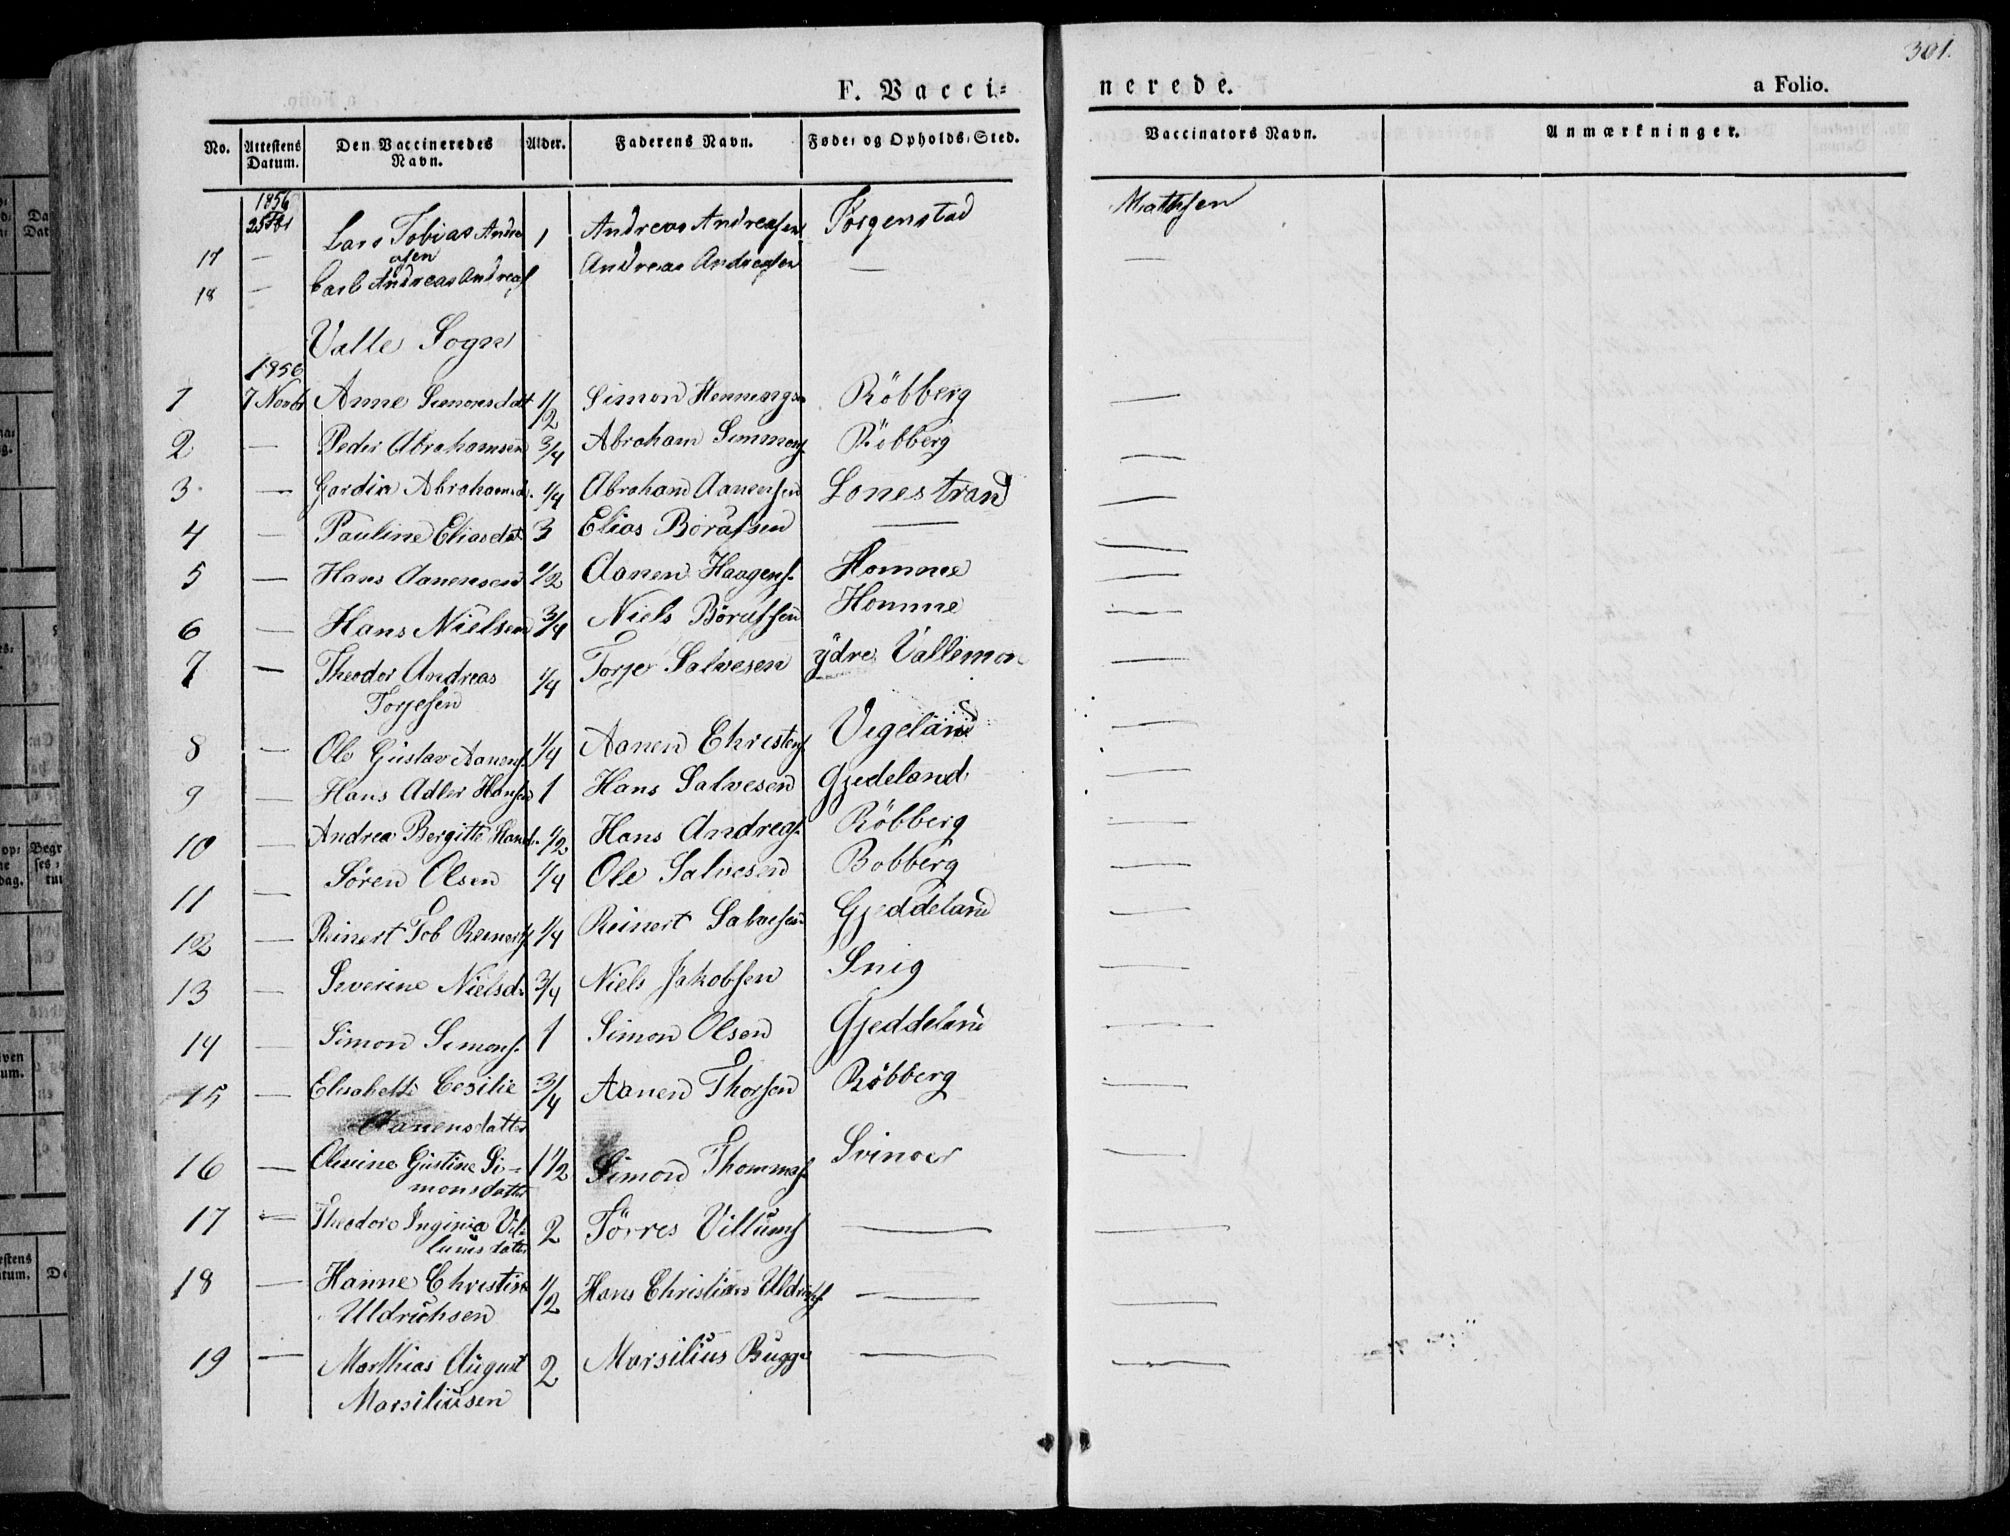 301.
F. Vacci=
nerede.
a Folio.
No. Attestens Datum. Den Vaccineredes Navn. Alder. Faderens Navn. Føde- og Opholds-Sted. Vaccinators Navn. Anmærkninger.
1856
17 — Lars Tobias Andre 1 Andreas Andreasen
asen
18 — Carl Andreas Andreas Andreas Andreasen — —
Valle Sogn
1856
1 7 Novbr Anne Simonsdat 1/2 Simon Hennings Röbberg —
2 — Peder Abrahamsen 3/4 Abraham Röbberg —
3 — Abrahamsd. 1/4 Abraham Aanensen Lonestrand —
4 — Pauline Eliasdat 3 Elias Börufsen — —
5 — Hans Aanensen 1/2 Aanen Haagens. Homme —
6 — Hans Nielsen 3/4 Niels Börufsen Homme —
7 — Theodor Andreas 1/4 Torje Salvesen ydre —
Torjesen
8 — Ole Gustav Aanens. 1/4 Aanen Christens Vigeland —
9 — Hans Adler Hansen 1 Hans Salvesen Gjedeland —
10 — Andrea Bergitte Hansd. 1/2 Hans Andreas. Röbberg —
11 — Sören Olsen 1/4 Ole Salvesen Bobberg —
12 — Reinert Tob Reinerts 1/4 Reinert Salvesen Gjeddeland —
13 — Severine Nielsd. 3/4 Niels Jakobsen Snig —
14 — Simon Simons. 1 Simon Olsen Gjeddeland —
15 — Elisabeth Cesilie 3/4 Aanen Thorsen Röbberg —
Aanensdatter
16 — Olevine Gustine Si- 1 1/2 Simon Thommas. Svinoer —
monsdatter
17 — Theodora Inginia Vil- 2 Törres Villums — —
lumsdatter
18 — Hanne Christine 1/2 Hans Christian Uldrichs — —
Uldrichsen
19 — Mathias August 2 Marsilius Bugge — —
Marsiliusen